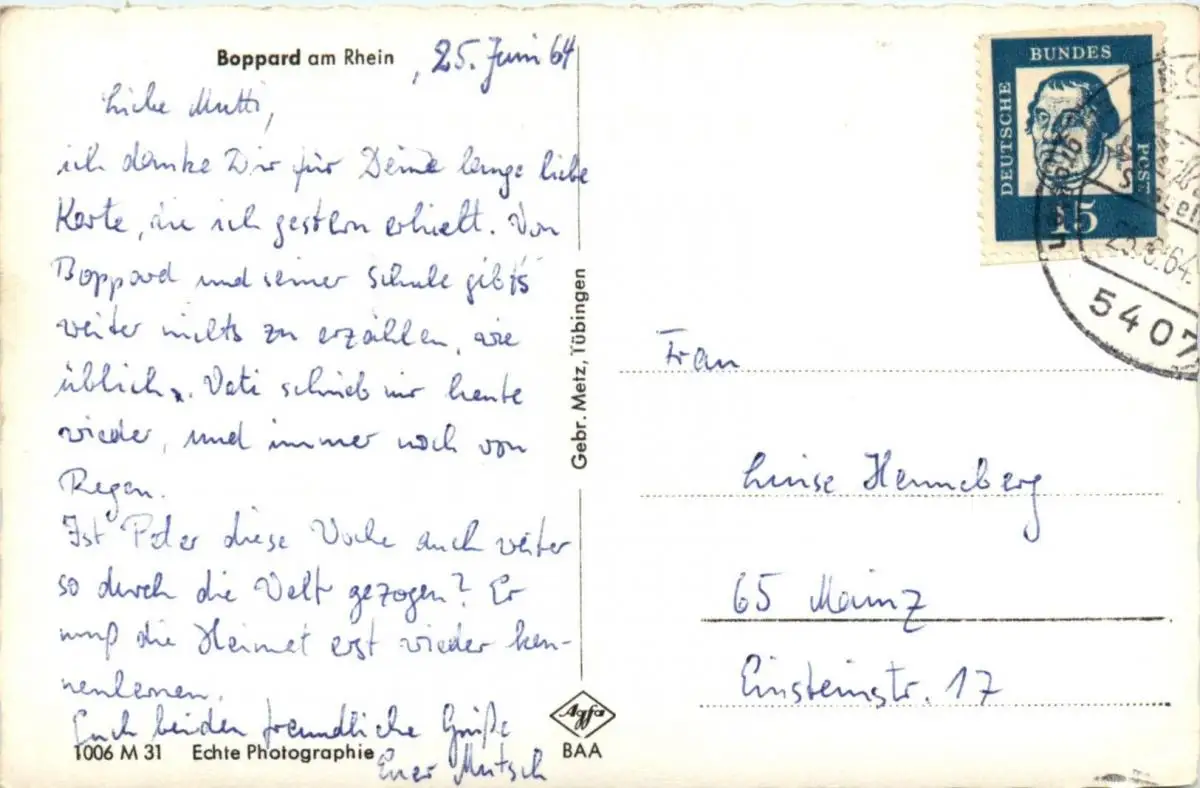 Boppard am Rhein , 25. Juni 64
Liebe Mutti,
ich danke Dir für Deine lange liebe
Karte, die ich gestern erhielt. Von
Boppard und seiner Schule gibt's
weiter nichts zu erzählen, wie
üblich. Vati schrieb mir heute
wieder, und immer noch von
Regen.
Ist Peter diese Woche auch weiter
so durch die Welt gezogen? Er
muß die Heimat erst wieder ken-
nenlernen.
Euch beiden freundliche Grüße
Euer Mutsch
1006 M 31 Echte Photographie
Gebr. Metz, Tübingen
Agfa
BAA
DEUTSCHE
BUNDES
POST
15
5407
Frau
Luise Henneberg
65 Mainz
Einsteinstr. 17